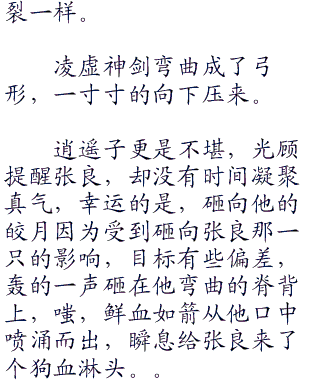 裂一样。
凌虚神剑弯曲成了弓
形，一寸寸的向下压来。
逍遥子更是不堪，光顾
提醒张良，却没有时间凝聚
真气，幸运的是，砸向他的
皎月因为受到砸向张良那一
只的影响，目标有些偏差，
轰的一声砸在他弯曲的脊背
上，嗤，鲜血如箭从他口中
喷涌而出，瞬息给张良来了
个狗血淋头。。